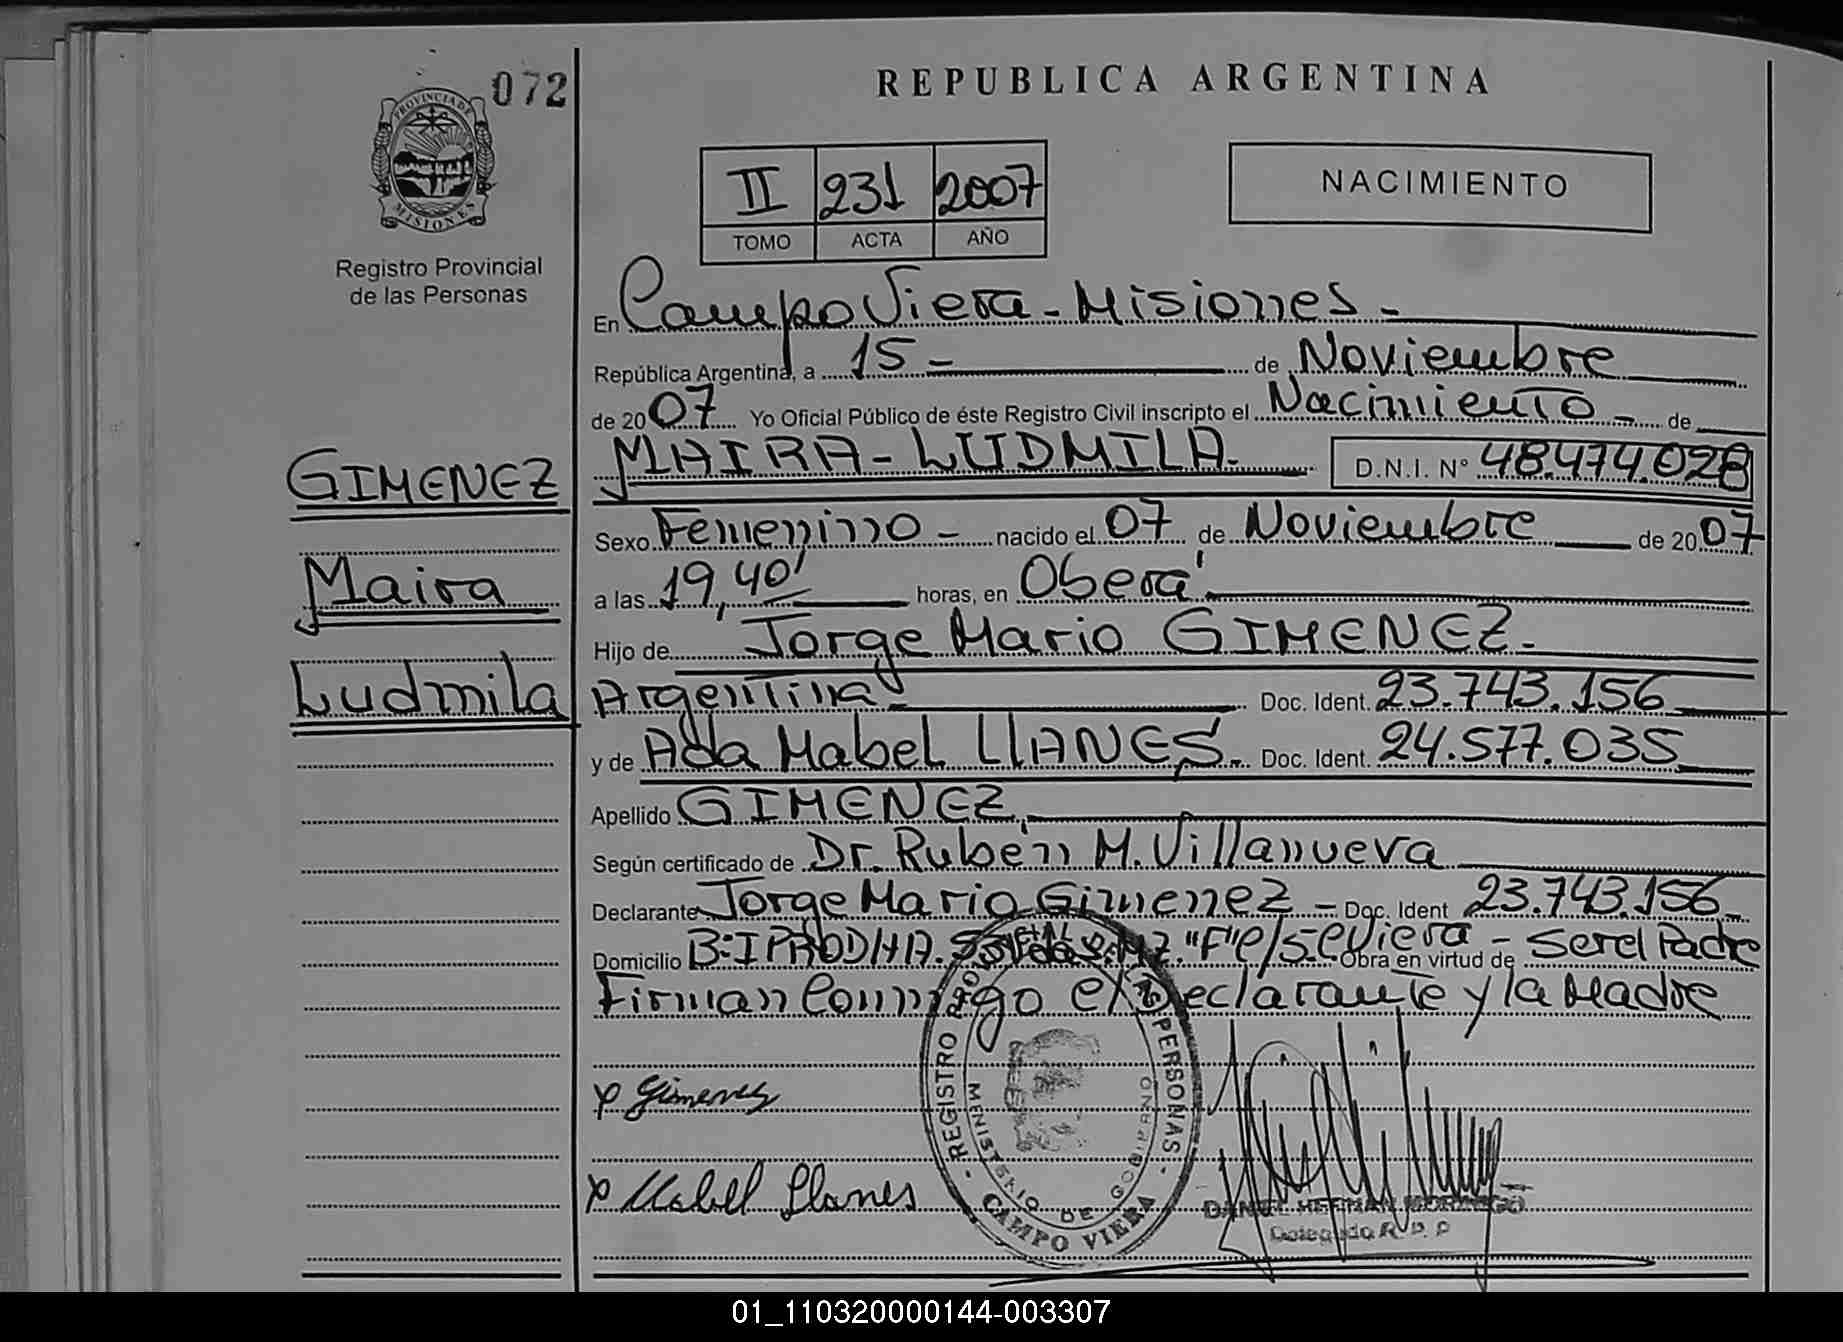 072
PROVINCIA DE
MISIONES
Registro Provincial
de las Personas
GIMENEZ
Maira
Ludmila
REPUBLICA ARGENTINA
II 231 2007
TOMO ACTA AÑO
NACIMIENTO
En Campo Viera - Misiones -
República Argentina, a 15 - de Noviembre
de 2007 Yo Oficial Público de éste Registro Civil inscripto el Nacimiento - de
MAIRA - LUDMILA. D.N.I. N° 48.474.028
Sexo Femenino - nacido el 07 de Noviembre de 2007
a las 19,40' horas, en Oberá
Hijo de Jorge Mario GIMENEZ.
Argentina Doc. Ident. 23.743.156
y de Ada Mabel LLANES. Doc. Ident. 24.577.035
Apellido GIMENEZ
Según certificado de Dr. Rubén M. Villanueva
Declarante Jorge Mario Gimenez - Doc. Ident 23.743.156
Domicilio B: IPRODHA. "F" Obra en virtud de - Ser el Padre
Firman Conmigo el Declarante y la Madre
x Gimenez
x Mabel Llanes
REGISTRO PERSONAS
MINISTERIO DE GOBIERNO
CAMPO VIERA
DANIEL HERNAN
Delegado R.P.P
01_110320000144-003307